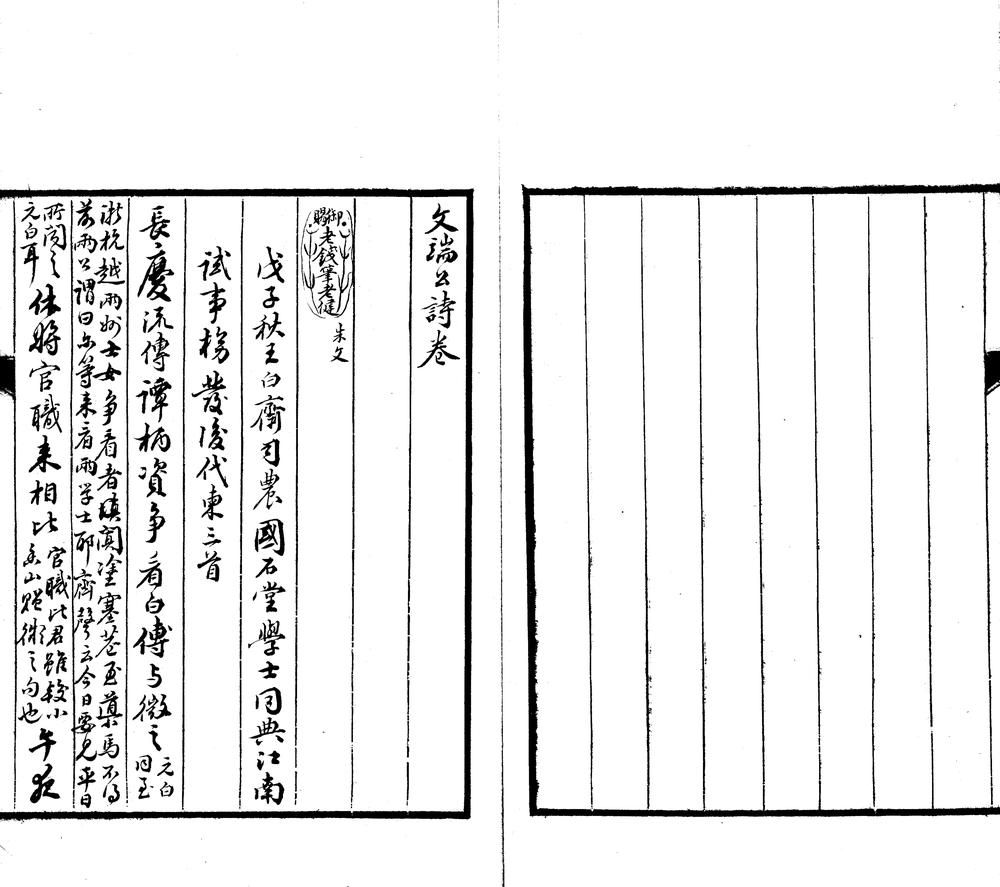 文瑞公詩卷
御賜老錢筆老健
朱文
戊子秋王白齋司農國石堂學士同典江南
試事榜發後代柬三首
長慶流傳譚柄資爭看白傅与微之元白同至
浙杭越兩州士女爭看者填闐塗塞巷至藥馬不得
前兩公謂曰尔等来看兩学士耶齊聲云今日要見平日
所闻之元白耳休將官職来相比官職比君雖較小
香山贈微之句也午夜